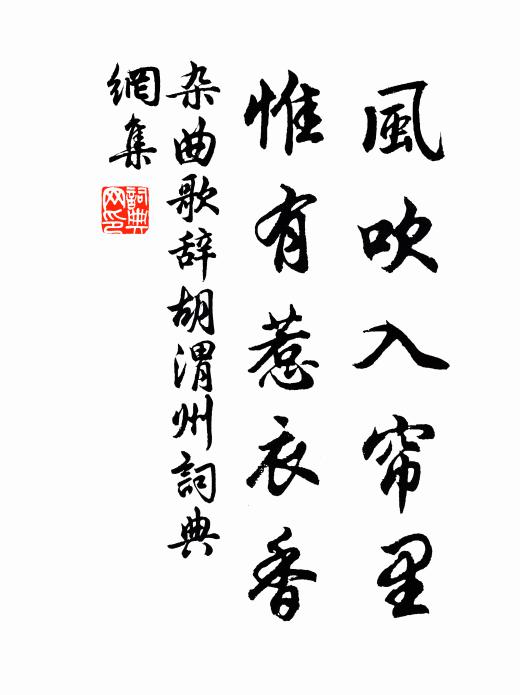 風吹入帘里
惟有惹衣香
杂曲歌辞胡渭州詞典
網集
詞典
网印